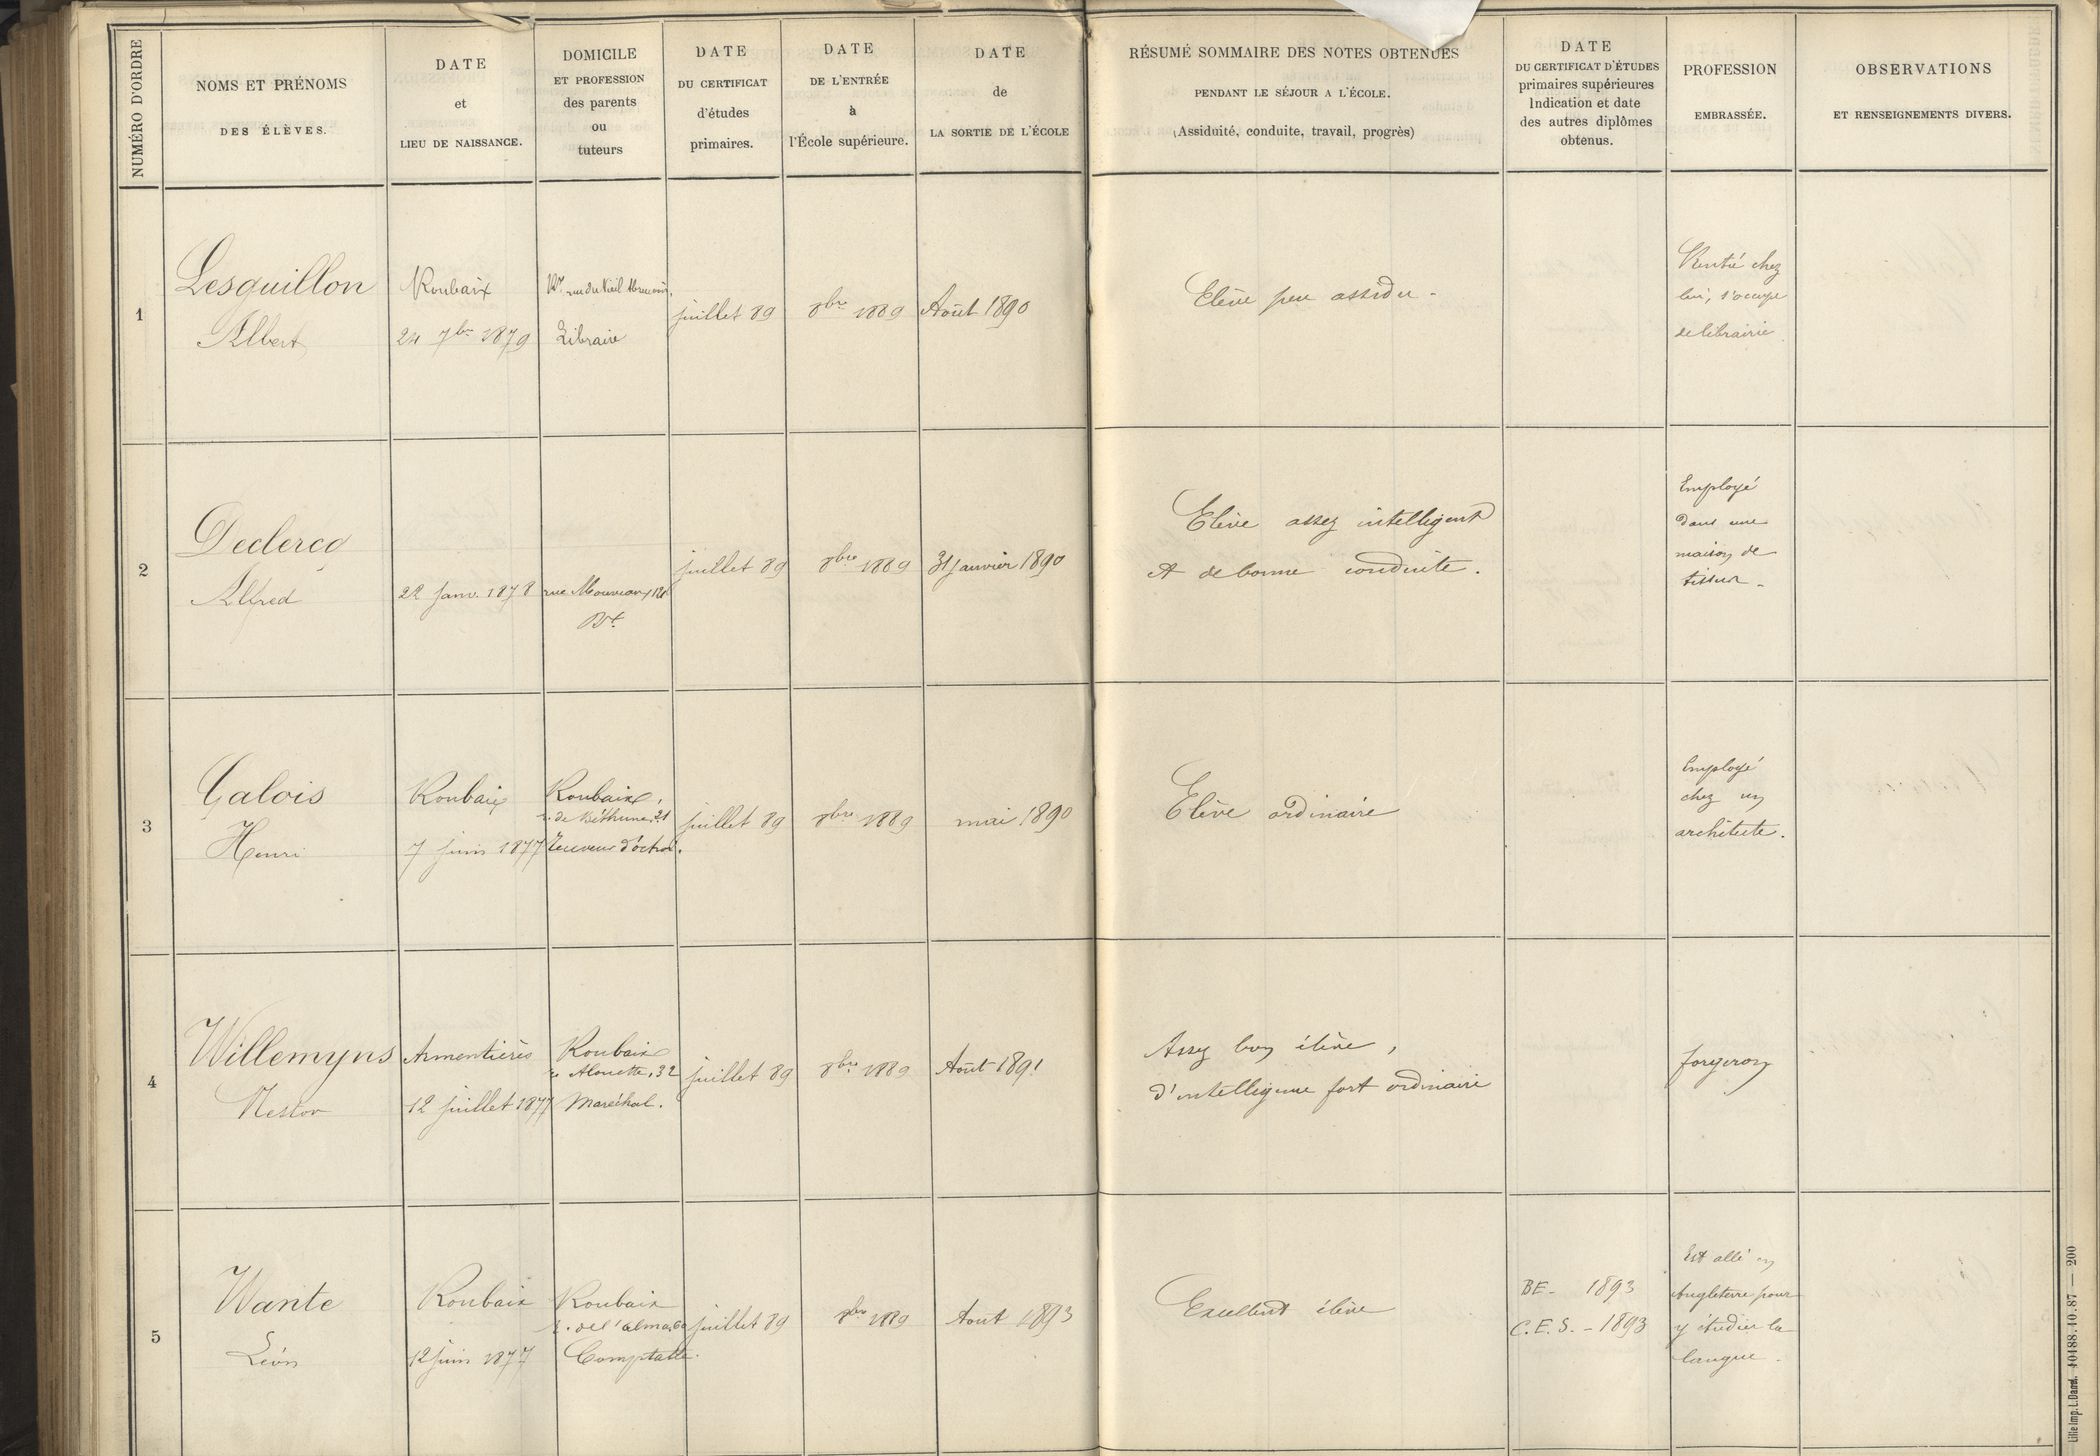 NUMÉRO D'ORDRE
NOMS ET PRÉNOMS
DES ÉLÈVES.
DATE
et
LIEU DE NAISSANCE.
DOMICILE
ET PROFESSION
des parents
ou
tuteurs
DATE
DU CERTIFICAT
d'études
primaires.
DATE
DE L'ENTRÉE
à
l'École supérieure.
DATE
de
LA SORTIE DE L'ÉCOLE
RÉSUMÉ SOMMAIRE DES NOTES OBTENUES
PENDANT LE SÉJOUR A L'ÉCOLE.
(Assiduité, conduite, travail, progrès)
DATE
DU CERTIFICAT D'ÉTUDES
primaires supérieures
Indication et date
des autres diplômes
obtenus.
PROFESSION
EMBRASSÉE.
OBSERVATIONS
ET RENSEIGNEMENTS DIVERS.
1
Lesquillon
Albert
Roubaix
24 7bre 1879
rue du Vieil Abreuvoir,
Libraire
juillet 89
8bre 1889
Août 1890
Elève peu assidu -
Rentré chez
lui, s'occupe
de librairie
2
Declercq
Alfred
22 janv. 1878
rue Mouvaux
Bt
juillet 89
8bre 1889
31 janvier 1890
Elève assez intelligent
et de bonne conduite.
Employé
dans une
maison de
tissus -
3
Galois
Henri
Roubaix
7 juin 1877
Roubaix,
r. de Béthune, 21
Receveur d'octroi.
juillet 89
8bre 1889
mai 1890
Elève ordinaire
Employé
chez un
architecte.
4
Willemyns
Nestor
Armentières
12 juillet 1877
Roubaix
r. Alouette, 32
Maréchal.
juillet 89
8bre 1889
Août 1891
Assez bon élève,
d'intelligence fort ordinaire
forgeron
5
Wante
Léon
Roubaix
12 juin 1877
Roubaix
r. de l'alma, 60
Comptable.
juillet 89
8bre 1889
Aout 1893
Excellent élève
BE - 1893
C.E.S. - 1893
Est allé en
Angleterre pour
y étudier la
langue.
Lille Imp. L. Danel. 101488.10.87 — 200